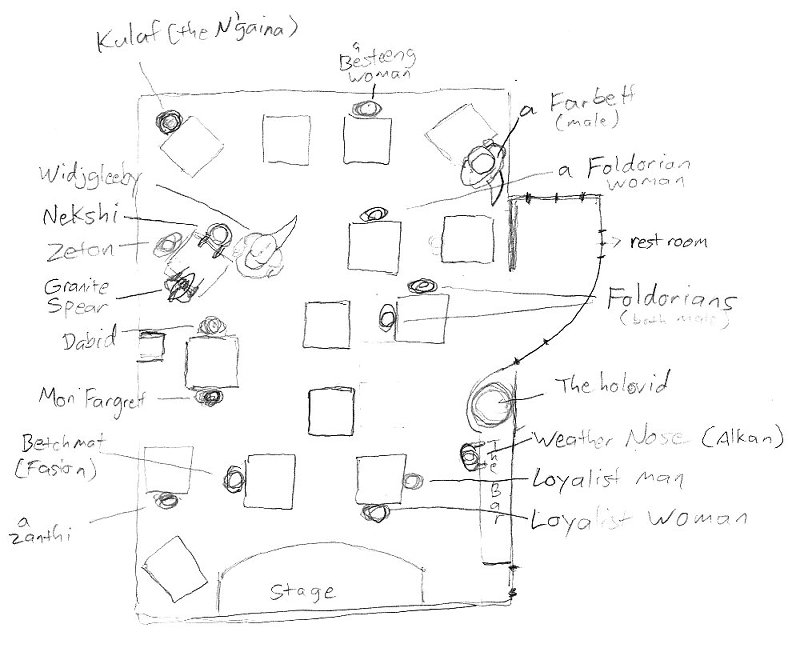 Kulaf (the N'gaina)
a
Besteeng
woman
a Farbett
(male)
Widjgleeby
a Foldorian
woman
Nekshi
Zeton
rest room
Granite
Spear
Foldorians
(both male)
Dabid
The holovid
Mon'Fargret
Weather Nose (Alkan)
Betchmat
(Fasion)
The Bar
Loyalist man
Loyalist Woman
a
Zanthi
Stage